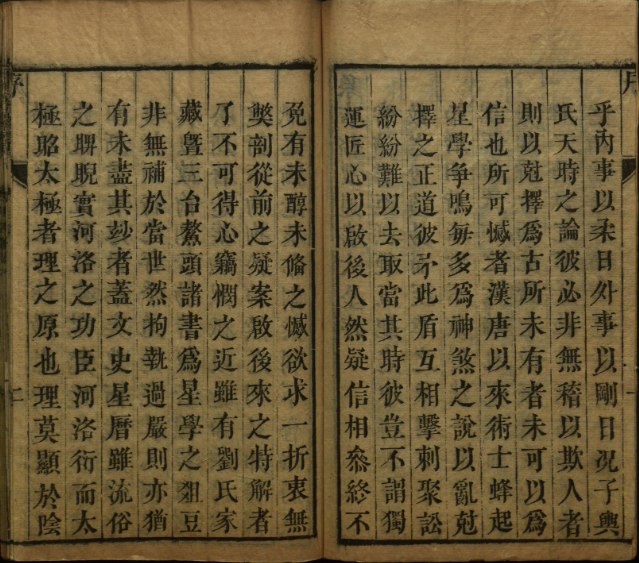 乎內事以柔日外事以剛日况子輿
氏天時之論彼必非無稽以欺人者
則以尅擇爲古所未有者未可以爲
信也所可憾者漢唐以來術士蜂起
星學爭鳴每多爲神煞之說以亂尅
擇之正道彼矛此盾互相擊刺聚訟
紛紛難以去取當其時彼豈不謂獨
運匠心以啟後人然疑信相叅終不
免有未醇未俻之憾欲求一折衷無
獘剖從前之疑案啟後來之特解者
了不可得心竊憫之近雖有劉氏家
藏曁三台鰲頭諸書爲星學之俎豆
非無補於當世然拘執過嚴則亦猶
有未盡其玅者蓋文史星曆雖流俗
之睤睨實河洛之功臣河洛衍而太
極昭太極者理之原也理莫顯於陰
序
二